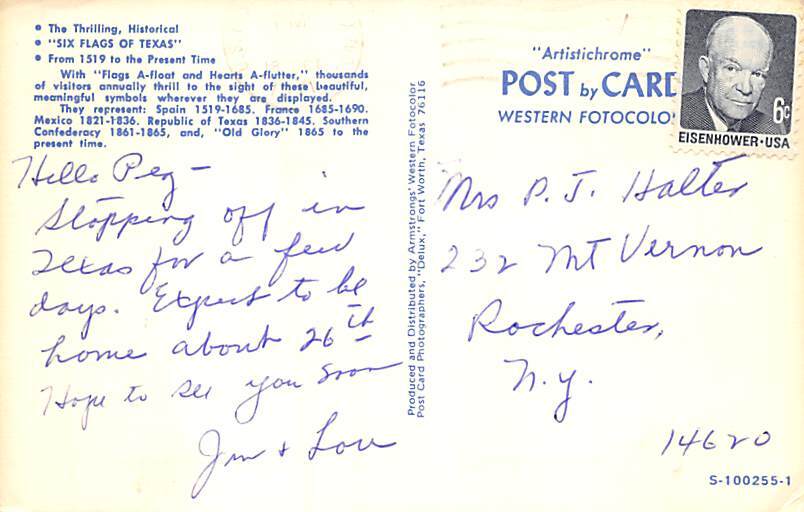 • The Thrilling, Historical
• "SIX FLAGS OF TEXAS"
• From 1519 to the Present Time
With "Flags A-float and Hearts A-flutter," thousands
of visitors annually thrill to the sight of these beautiful,
meaningful symbols wherever they are displayed.
They represent: Spain 1519-1685. France 1685-1690.
Mexico 1821-1836. Republic of Texas 1836-1845. Southern
Confederacy 1861-1865, and, "Old Glory" 1865 to the
present time.
Hello Peg -
Stopping off in
Texas for a few
days. Expect to be
home about 26th
Hope to see you soon
Jim & Lou
Produced and Distributed by Armstrongs' Western Fotocolor
Post Card Photographers, "Delux," Fort Worth, Texas 76116
"Artistichrome"
POST by CARD
WESTERN FOTOCOLO
6c
EISENHOWER·USA
Mrs P. J. Halter
232 Mt Vernon
Rochester,
N.Y.
14620
S-100255-1